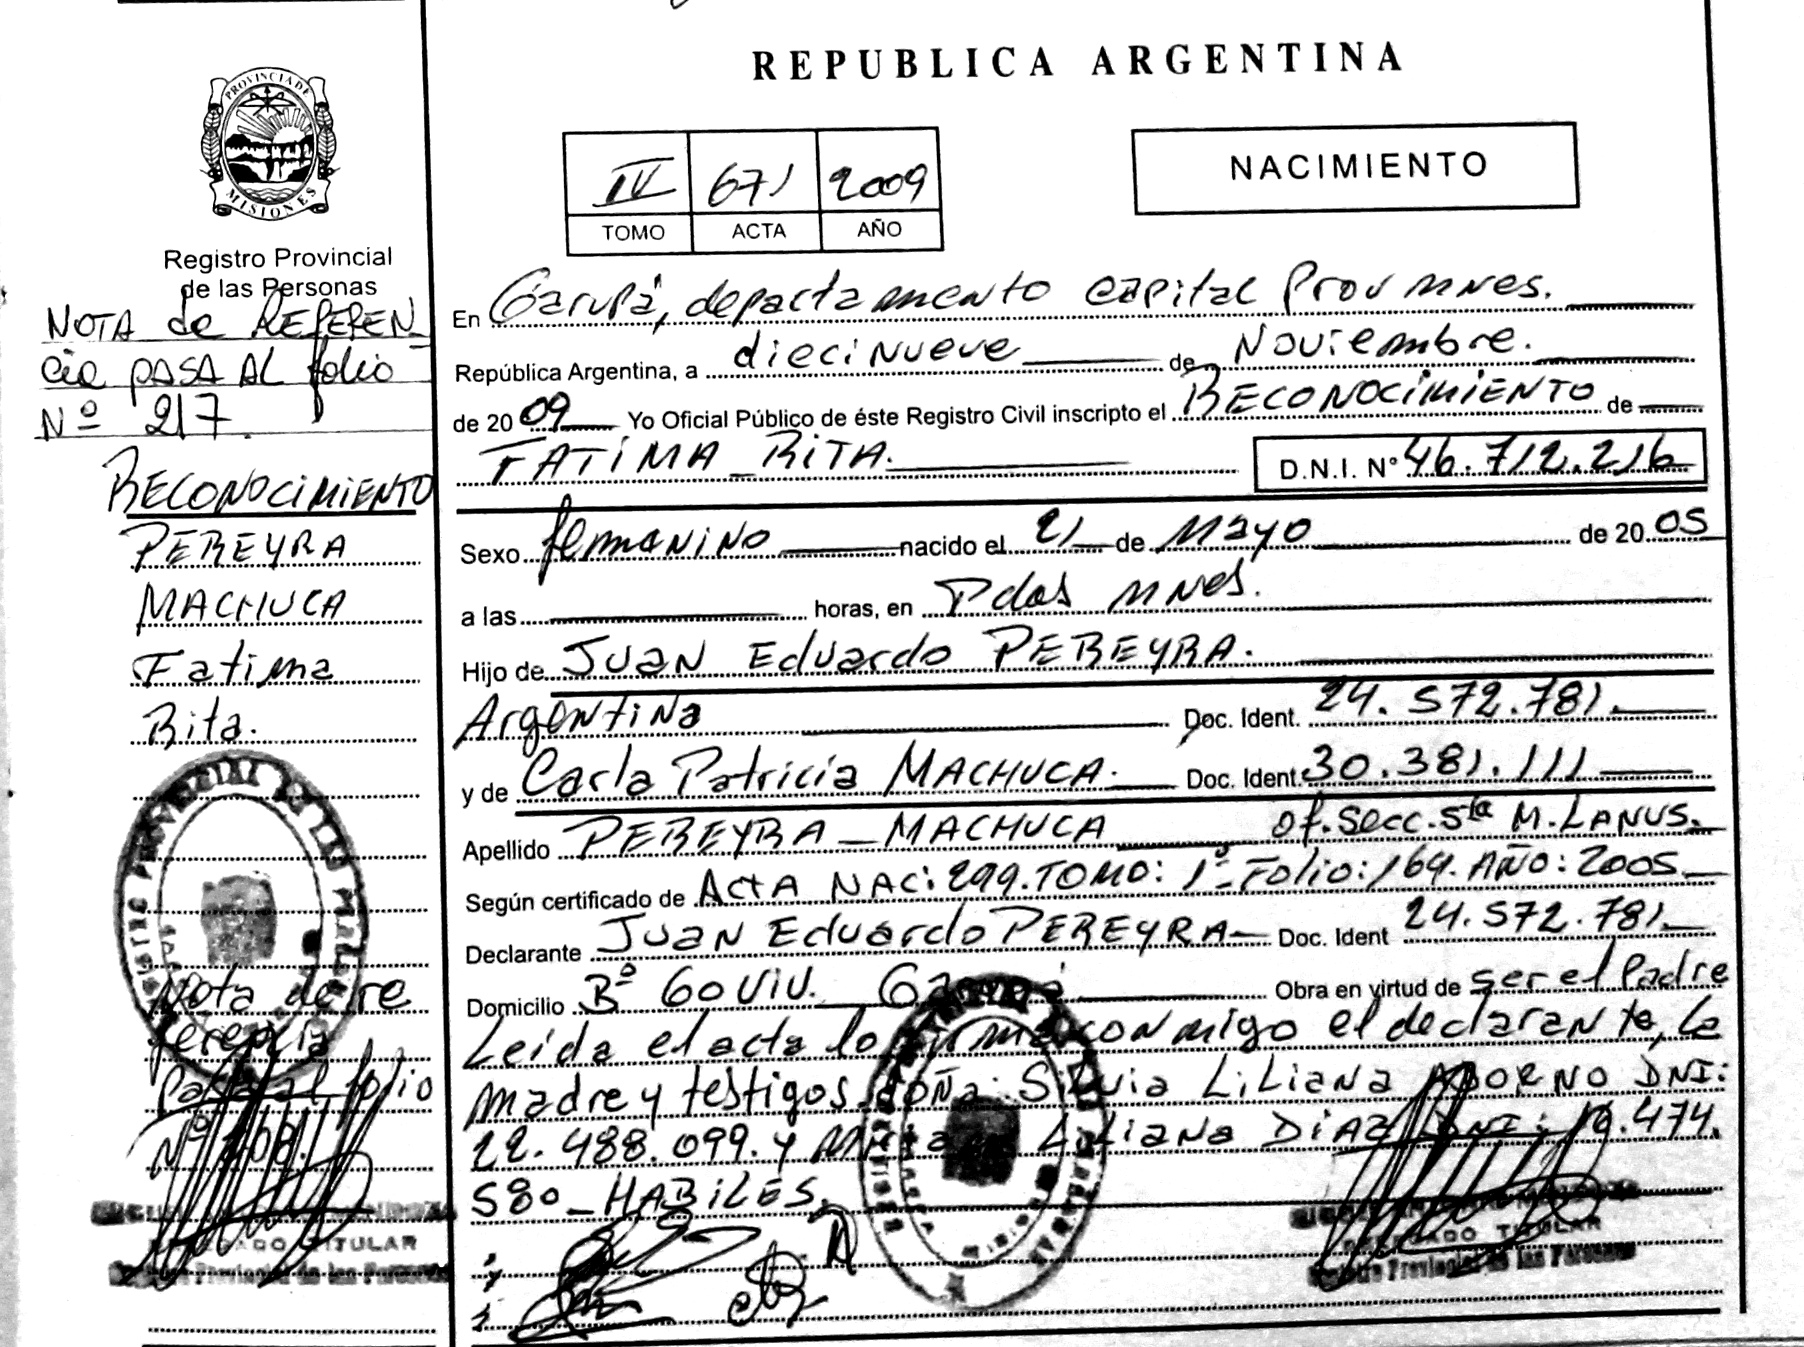 REPUBLICA ARGENTINA
PROVINCIA DE
MISIONES
Registro Provincial
de las Personas
IV 671 2009
TOMO ACTA AÑO
NACIMIENTO
NOTA de REFEREN
cia PASA AL folio
Nº 217.
RECONOCIMIENTO
PEREYRA
MACHUCA
Fatima
Rita.
Nota de re
ferencia
Pasa al folio
Nº 108.
DELEGADO TITULAR
En Garupá, departamento capital Prov mnes.
República Argentina, a diecinueve de Noviembre.
de 2009 Yo Oficial Público de éste Registro Civil inscripto el RECONOCIMIENTO de
FATIMA RITA. D.N.I. Nº 46.712.216
Sexo femenino nacido el 21 de Mayo de 2005
a las horas, en Pdas mnes.
Hijo de Juan Eduardo PEREYRA.
Argentina Doc. Ident. 24.572.781.
y de Carla Patricia MACHUCA. Doc. Ident. 30.381.111
Apellido PEREYRA - MACHUCA of. Secc. 5ta M. LANUS.
Según certificado de ACTA NAC: 299. TOMO: 1º Folio: 164. AÑO: 2005
Declarante Juan Eduardo PEREYRA Doc. Ident 24.572.781.
Domicilio Bº 60 VIV. Garupá Obra en virtud de ser el Padre
Leida el acta lo firma conmigo el declarante, la
madre y testigos doña: Silvia LiLiana ADORNO DNI:
22.488.099. y LiLiana DIAZ DNI: .474.
580 - HABILES.
DELEGADO TITULAR
Registro Provincial de las Personas